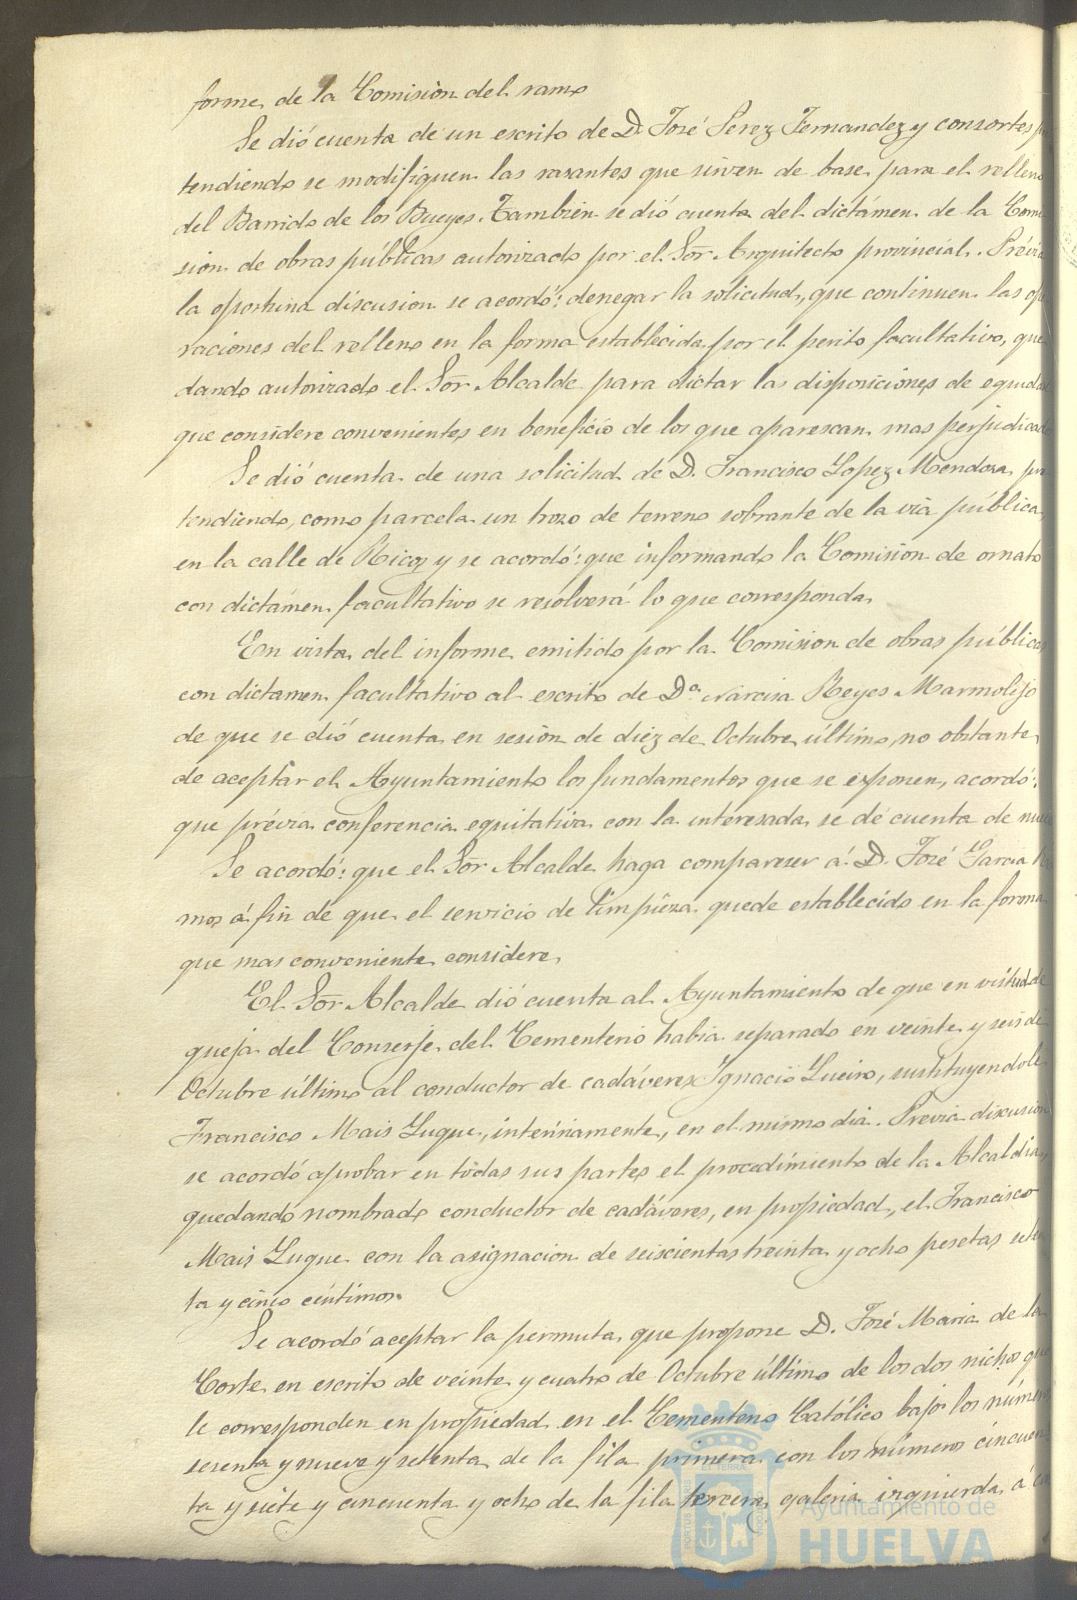 forme de la Comisiòn del ramo
Se dió cuenta de un escrito de D. José Perez Fernandez y consortes
tendiendo se modifiquen las rasantes que sirven de base para el relleno
del Barrido de los Bueyes. Tambien se dió cuenta del dictámen de la Comi
sion de obras públicas autorizado por el Sor Arquitecto provincial. Prévia
la oportuna discusion se acordó: denegar la solicitud, que continuen las ope
raciones del relleno en la forma establecida por el perito facultativo, que
dando autorizado el Sor Alcalde para dictar las disposiciones de equidad
que considere convenientes en beneficio de los que aparescan mas perjudicados
Se dió cuenta de una solicitud de D. Francisco Lopez Mendoza pre
tendiendo, como parcela un trozo de terreno sobrante de la via pública,
en la calle de Ricos y se acordó: que informando la Comision de ornato
con dictámen facultativo se resolverá lo que corresponda.
En vista del informe emitido por la Comision de obras públicas
con dictamen facultativo al escrito de Da. Narcisa Reyes Marmolijo
de que se dió cuenta en sesión de diez de Octubre último, no obstante
de aceptar el Ayuntamiento los fundamentos que se exponen, acordó:
que prévia conferencia equitativa con la interesada se dé cuenta de nuevo
Se acordó: que el Sor Alcalde haga compareser á D. José Garcia
mos á fin de que el servicio de limpieza quede establecido en la forma
que mas conveniente considere.
El Sor Alcalde dió cuenta al Ayuntamiento de que en virtud de
queja del Conserje del Cementerio habia separado en veinte y seis de
Octubre último al conductor de cadáveres Ignacio Lueiro, sustituyendole
Francisco Mais Luque, interinamente, en el mismo dia. Previa discusion
se acordó aprobar en todas sus partes el procedimiento de la Alcaldia,
quedando nombrado conductor de cadáveres, en propiedad, el Francisco
Mais Luque con la asignacion de seiscientas treinta y ocho pesetas seten
ta y cinco céntimos.
Se acordó aceptar la permuta que propone D. José Maria de la
Corte en escrito de veinte y cuatro de Octubre último de los dos nichos que
le corresponden en propiedad en el Cementerio Católico bajo los números
sesenta y nueve y setenta de la fila primera con los números cincuen
ta y siete y cincuenta y ocho de la fila tercera galeria izquierda, á
Ayuntamiento de
HUELVA